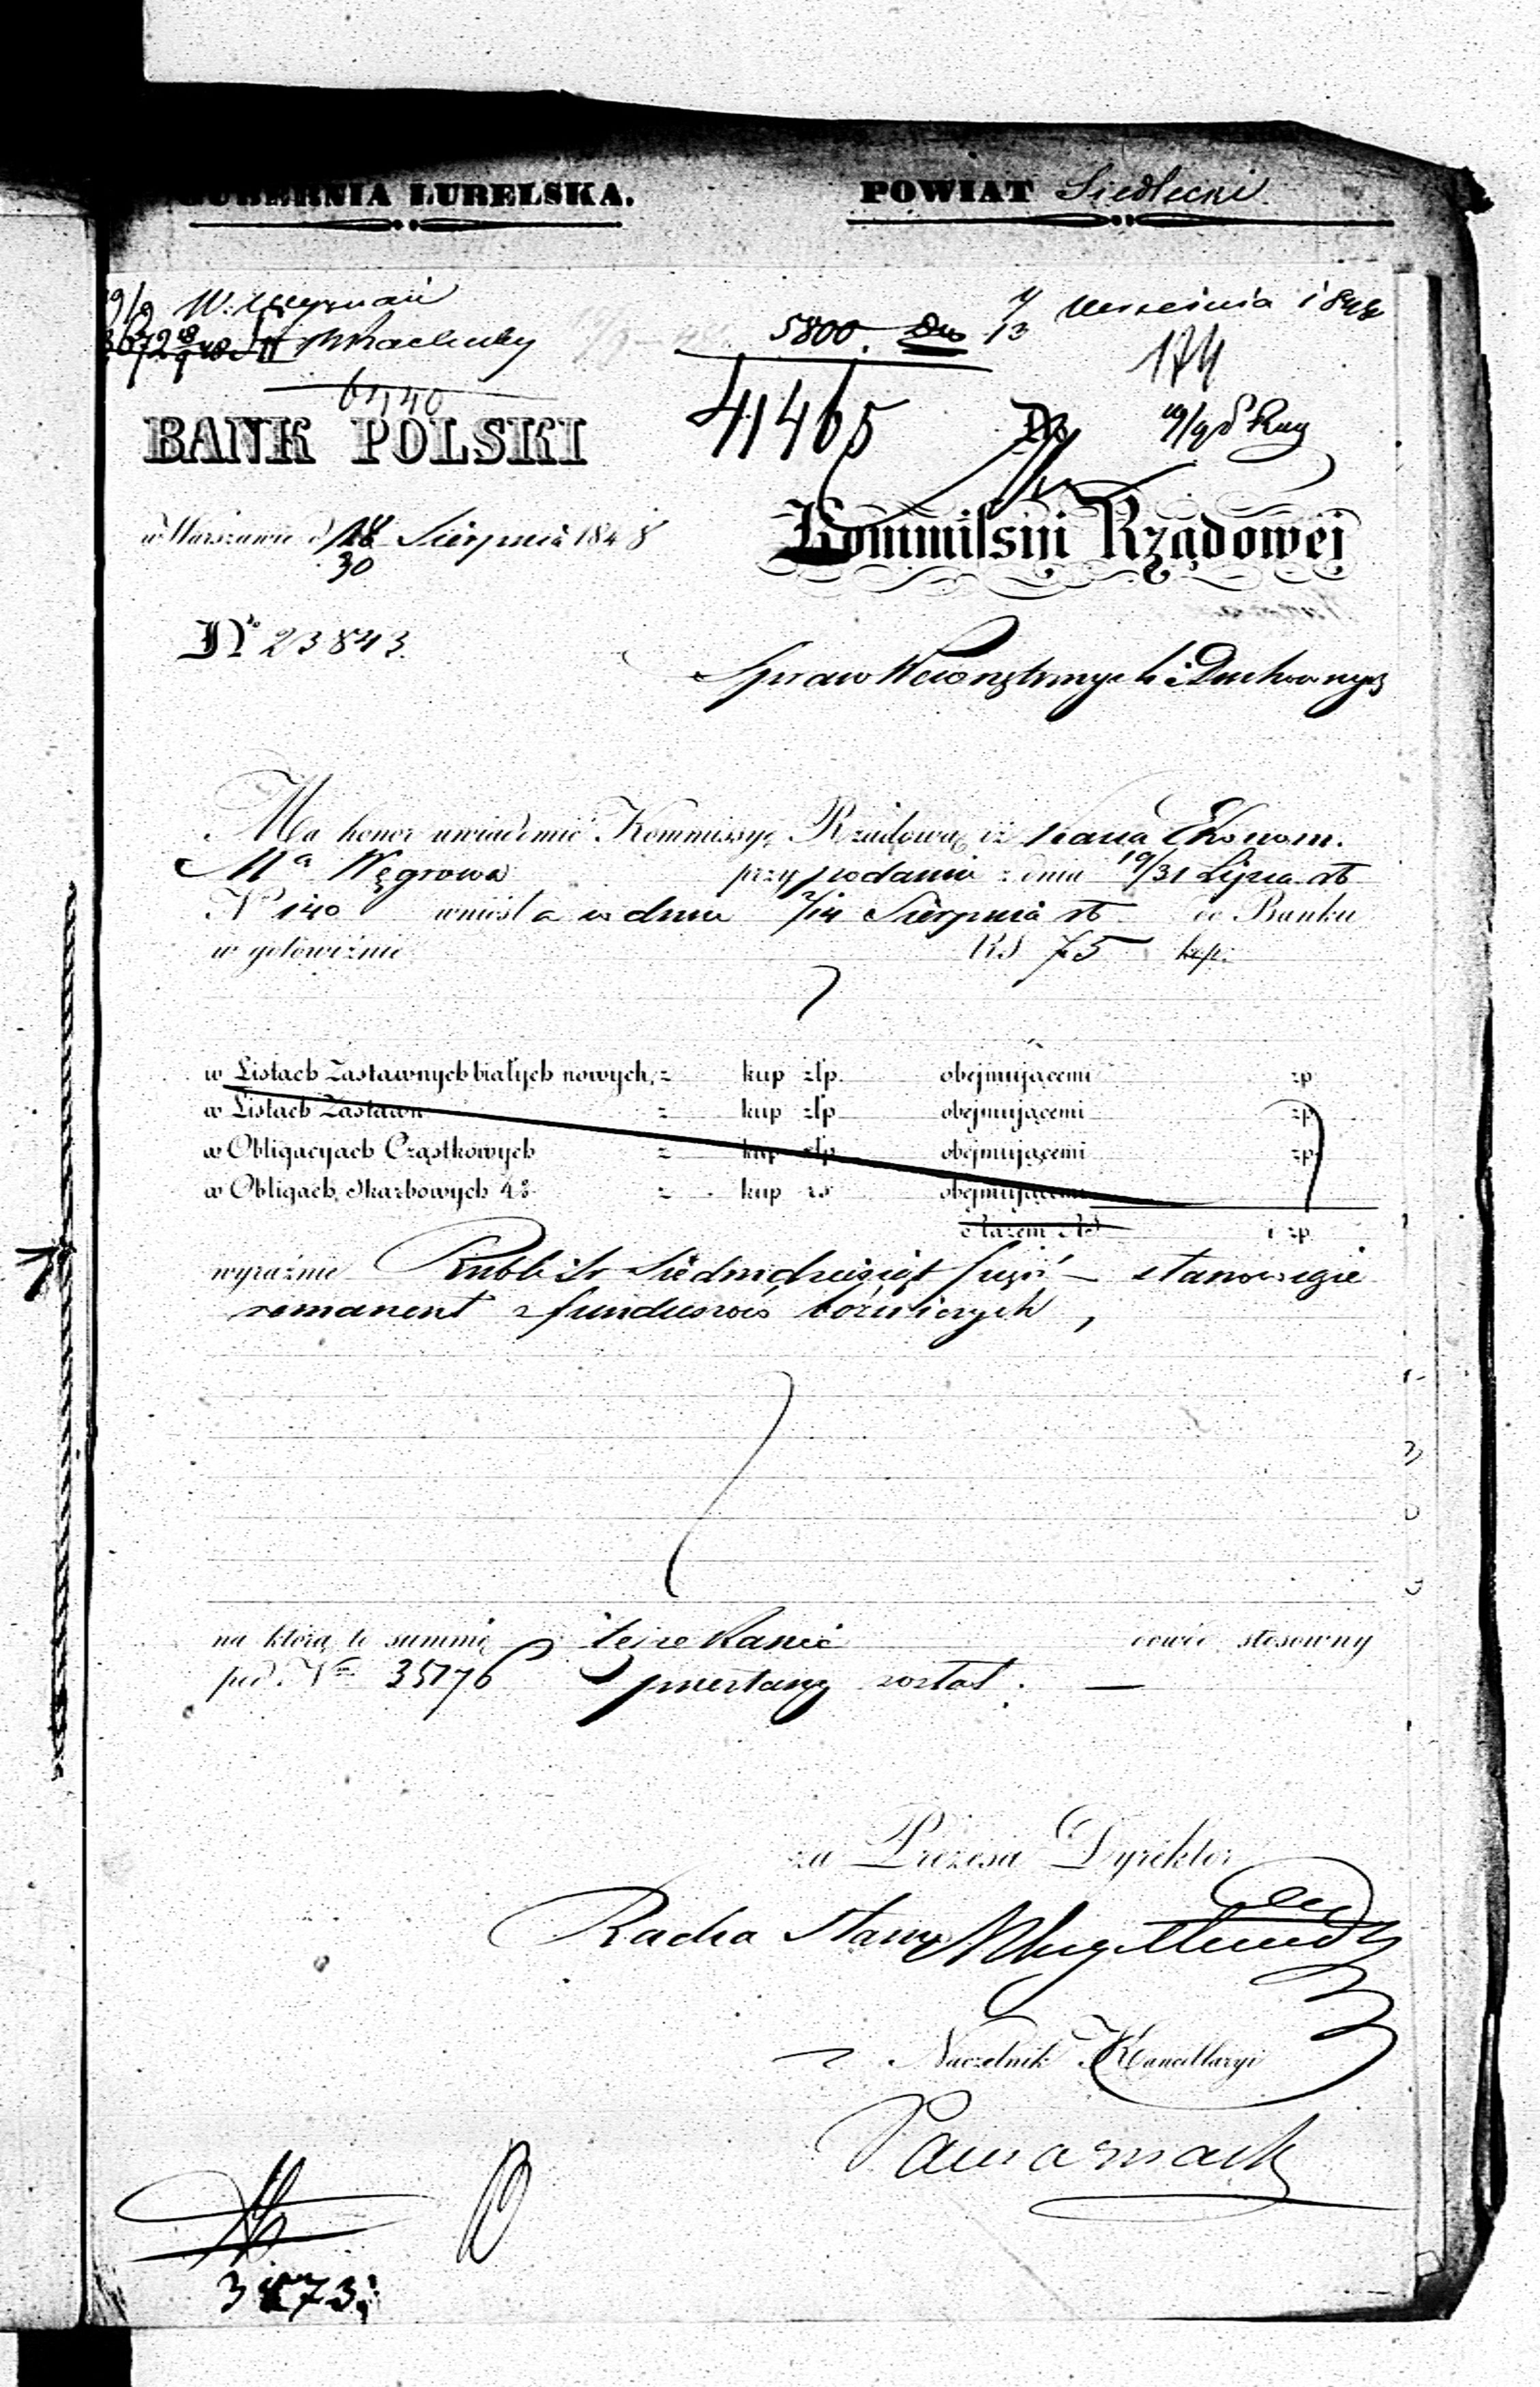 GUBERNIA LUBELSKA. POWIAT Siedlecki
19/9 W. 4 Września 1848
5800. 13
174
6440
BANK POLSKI 41465 19/9
w Warszawie d 18 Sierpnia 1848
30
Kommissyi Rządowej
N° 23843.
Spraw Wewnętrznych i Duchownych
Ma honor uwiadomić Kommissyą Rządową iż Kassa Ekonom.
Mta Węgrowa przy podaniu z dnia 19/31 Lipca rb
N 140 wniosła w dniu 2/14 Sierpnia rb do Banku
w gotowiźnie RS 75 kop:
w Listach Zastawnych białych nowych, z kup złp. obejmującemi zp
w Listach Zastawn z kup złp obejmującemi zp
w Obligacyach Cząstkowych z kup złp obejmującemi zp
w Obligach Skarbowych 4% z kup rs obejmującemi
Razem RS i zp
wyraźnie Rubli Sr Siedmdziesiąt pięć — stanowiące
remanent z funduszów bóżniczych,
na którą to summę tejże Kassie dowód stosowny
pod N 35176 przesłany został. —
za Prezesa Dyrektor
Radca Stanu
Naczelnik Kancellaryi